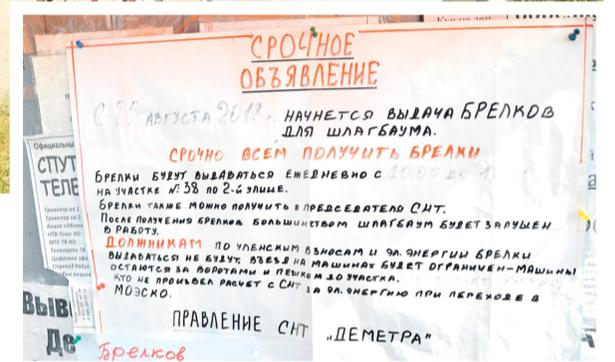 СРОЧНОЕ
ОБЪЯВЛЕНИЕ
С 25 АВГУСТА 2018 г. НАЧНЕТСЯ ВЫДАЧА БРЕЛКОВ
ДЛЯ ШЛАГБАУМА.
СРОЧНО ВСЕМ ПОЛУЧИТЬ БРЕЛКИ
БРЕЛКИ БУДУТ ВЫДАВАТЬСЯ ЕЖЕДНЕВНО С 10.00 ДО
НА УЧАСТКЕ №38 ПО 2-й УЛИЦЕ.
БРЕЛКИ ТАКЖЕ МОЖНО ПОЛУЧИТЬ У ПРЕДСЕДАТЕЛЯ СНТ.
ПОСЛЕ ПОЛУЧЕНИЯ БРЕЛКОВ БОЛЬШИНСТВОМ ШЛАГБАУМ БУДЕТ ЗАПУЩЕН
В РАБОТУ.
ДОЛЖНИКАМ ПО ЧЛЕНСКИМ ВЗНОСАМ И ЭЛ. ЭНЕРГИИ БРЕЛКИ
ВЫДАВАТЬСЯ НЕ БУДУТ, ВЪЕЗД НА МАШИНАХ БУДЕТ ОГРАНИЧЕН-МАШИНЫ
ОСТАЮТСЯ ЗА ВОРОТАМИ И ПЕШКОМ ДО УЧАСТКА.
КТО НЕ ПРОИЗВЕЛ РАСЧЕТ С СНТ ЗА ЭЛ. ЭНЕРГИЮ ПРИ ПЕРЕХОДЕ В
МОЭСКО.
ПРАВЛЕНИЕ СНТ "ДЕМЕТРА"
Брелков
СПУТ
ТЕЛЕ
Выв
Де